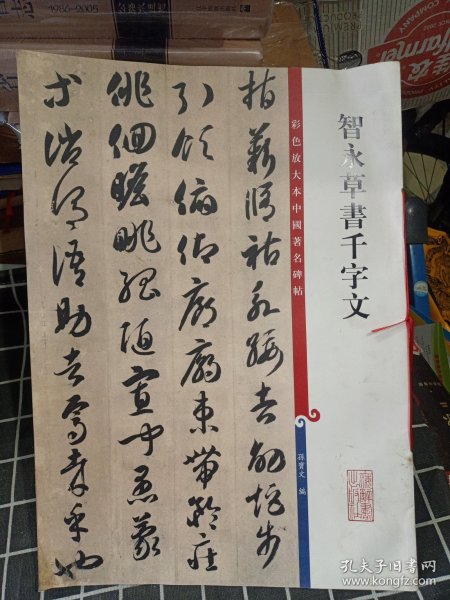 智永草書千字文
彩色放大本中國著名碑帖
孫寶文 編
指薪脩祜永綏吉劭矩步
引領俯仰廊廟束帶矜莊
俳佪瞻眺孤陋寡聞愚蒙
等誚謂語助者焉哉乎也
1986-2005
farmer
孔夫子旧书网
www.kongfz.com